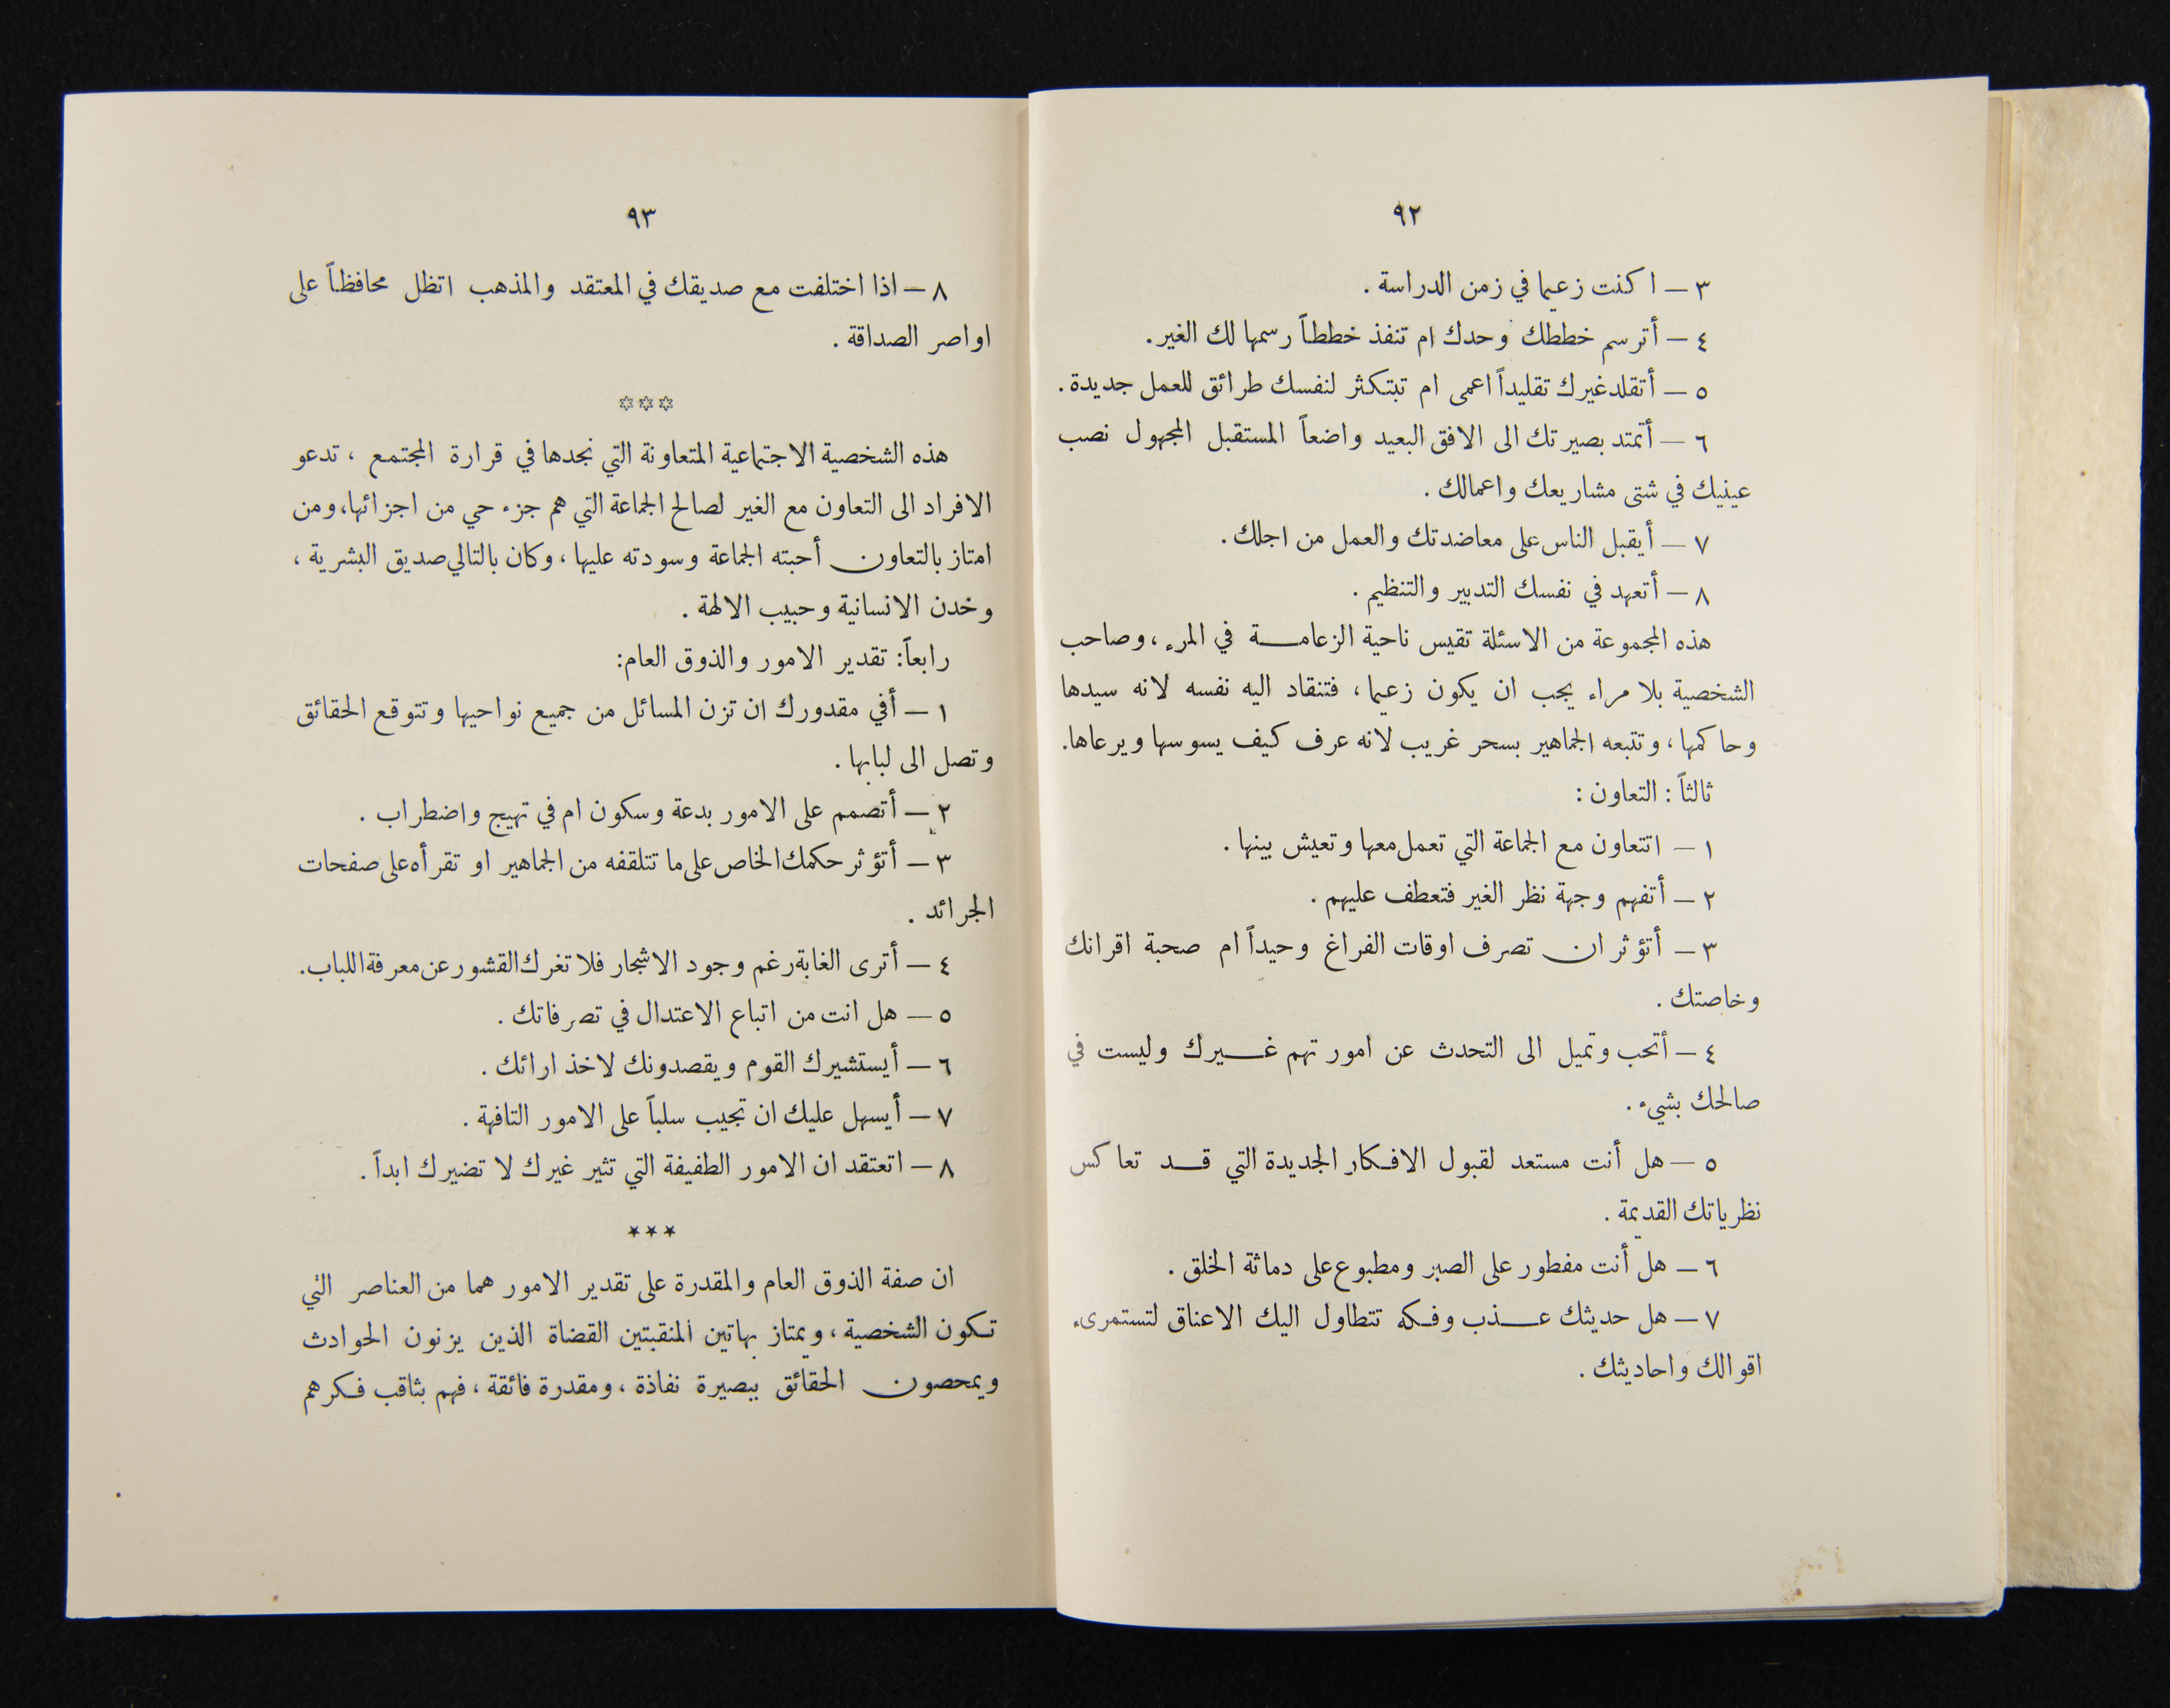 ٩٢
٣ – اكنت زعيما في زمن الدراسة .
٤ – أترسم خططك وحدك ام تنفذ خططاً رسمها لك الغير.
٥ – أتقلد غيرك تقليداً اعمى ام تبتكثر لنفسك طرائق للعمل جديدة.
٦ – أتمتد بصيرتك الى الافق البعيد واضعاً المستقبل المجهول نصب
عينيك في شتى مشاريعك واعمالك .
٧ – أيقبل الناس على معاضدتك والعمل من اجلك.
٨ – أتعهد في نفسك التدبير والتنظيم .
هذه المجموعة من الاسئلة تقيس ناحية الزعامة في المرء ، وصاحب
الشخصية بلا مراء يجب ان يكون زعيما ، فتنقاد اليه نفسه لانه سيدها
وحاكمها ، وتتبعه الجماهير بسحر غريب لانه عرف كيف يسوسها ويرعاها.
ثالثاً : التعاون :
١ – اتتعاون مع الجماعة التي تعمل معها وتعيش بينها .
٢ – أتفهم وجهة نظر الغير فتعطف عليهم .
٣ – أتؤثر ان تصرف اوقات الفراغ وحيداً ام صحبة اقرانك
وخاصتك .
٤ – أتحب وتميل الى التحدث عن امور تهم غيرك وليست في
صالحك بشيء .
٥ – هل أنت مستعد لقبول الافكار الجديدة التي قد تعاكس
نظرياتك القديمة .
٦ – هل أنت مفطور على الصبر ومطبوع على دماثة الخلق .
٧ – هل حديثك عذب وفكه تتطاول اليك الاعناق لتستمرىء
اقوالك واحاديثك .
٩٣
٨ – اذا اختلفت مع صديقك في المعتقد والمذهب اتظل محافظاً على
اواصر الصداقة .
***
هذه الشخصية الاجتماعية المتعاونة التي نجدها في قرارة المجتمع ، تدعو
الافراد الى التعاون مع الغير لصالح الجماعة التي هم جزء حي من اجزائها، ومن
امتاز بالتعاون أحبته الجماعة وسودته عليها ، وكان بالتالي صديق البشرية ،
وخدن الانسانية وحبيب الالهة .
رابعاً: تقدير الامور والذوق العام:
١ – أفي مقدورك ان تزن المسائل من جميع نواحيها وتتوقع الحقائق
وتصل الى لبابها .
٢ – أتصمم على الامور بدعة وسكون ام في تهيج واضطراب .
٣ – أتؤثر حكمك الخاص على ما تتلقفه من الجماهير او تقرأه على صفحات
الجرائد .
٤ – أترى الغابة رغم وجود الاشجار فلا تغرك القشور عن معرفة اللباب.
٥ – هل انت من اتباع الاعتدال في تصرفاتك .
٦ – أيستشيرك القوم ويقصدونك لاخذ ارائك .
٧ – أيسهل عليك ان تجيب سلباً على الامور التافهة .
٨ – اتعتقد ان الامور الطفيفة التي تثير غيرك لا تضيرك ابداً .
***
ان صفة الذوق العام والمقدرة على تقدير الامور هما من العناصر التي
تكون الشخصية ، ويمتاز بهاتين المنقبتين القضاة الذين يزنون الحوادث
ويمحصون الحقائق ببصيرة نفاذة ، ومقدرة فائقة ، فهم بثاقب فكرهم